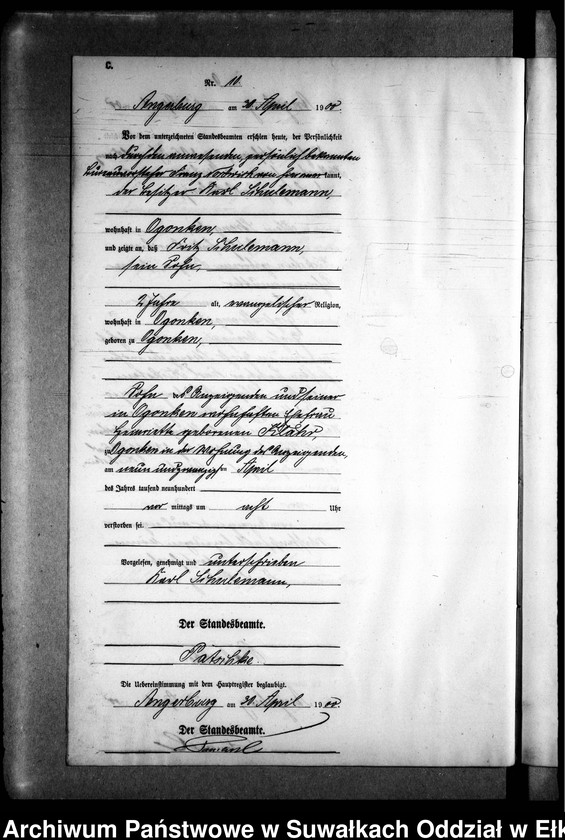 C.
Nr. 11.
Angerburg am 30. April 1900.
Vor dem unterzeichneten Standesbeamten erschien heute, der Persönlichkeit
nach durch den anwesenden, persönlich bekannten
Franz kannt,
der Besitzer Karl Schulemann,
wohnhaft in Ogonken,
und zeigte an, daß Fritz Schulemann,
sein Sohn,
2 Jahre alt, evangelischer Religion,
wohnhaft in Ogonken,
geboren zu Ogonken,
Sohn des Anzeigenden und seiner
in Ogonken wohnhaften Ehefrau
Henriette geborenen Klähs,
zu Ogonken in der Wohnung des Anzeigenden,
am neun und zwanzigsten April
des Jahres tausend neunhundert
vor mittags um acht Uhr
verstorben sei.
Vorgelesen, genehmigt und unterschrieben
Karl Schulemann,
Der Standesbeamte.
Die Uebereinstimmung mit dem Hauptregister beglaubigt.
Angerburg am 30. April 1900.
Der Standesbeamte.
Archiwum Państwowe w Suwałkach Oddział w Ełk